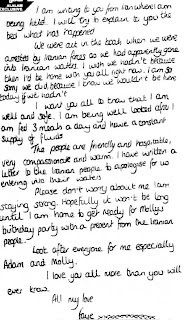 ALALAM
EXCLUSIVE
I am writing to you from Iran where I am
being held. I will try to explain to you the
best what has happened
We were out in the boat when we were
arrested by Iranian forces as we had apparently gone
into Iranian waters. I wish we hadn't because
then I'd be home with you all right now. I am so
sorry we did because I know we wouldn't be here
today if we hadn't.
I want you all to know that I am
well and safe. I am being well looked after. I
am fed 3 meals a day and have a constant
supply of fluids
The people are friendly and hospitable,
very compassionate and warm. I have written a
letter to the Iranian people to apologise for us
entering into their waters
Please don't worry about me I am
staying strong. Hopefully it won't be long
until I am home to get ready for Molly's
birthday party with a present from the Iranian
people.
Look after everyone for me especially
Adam and Molly.
I love you all more than you will
ever know.
All my love
Faye xxxxxxxxx